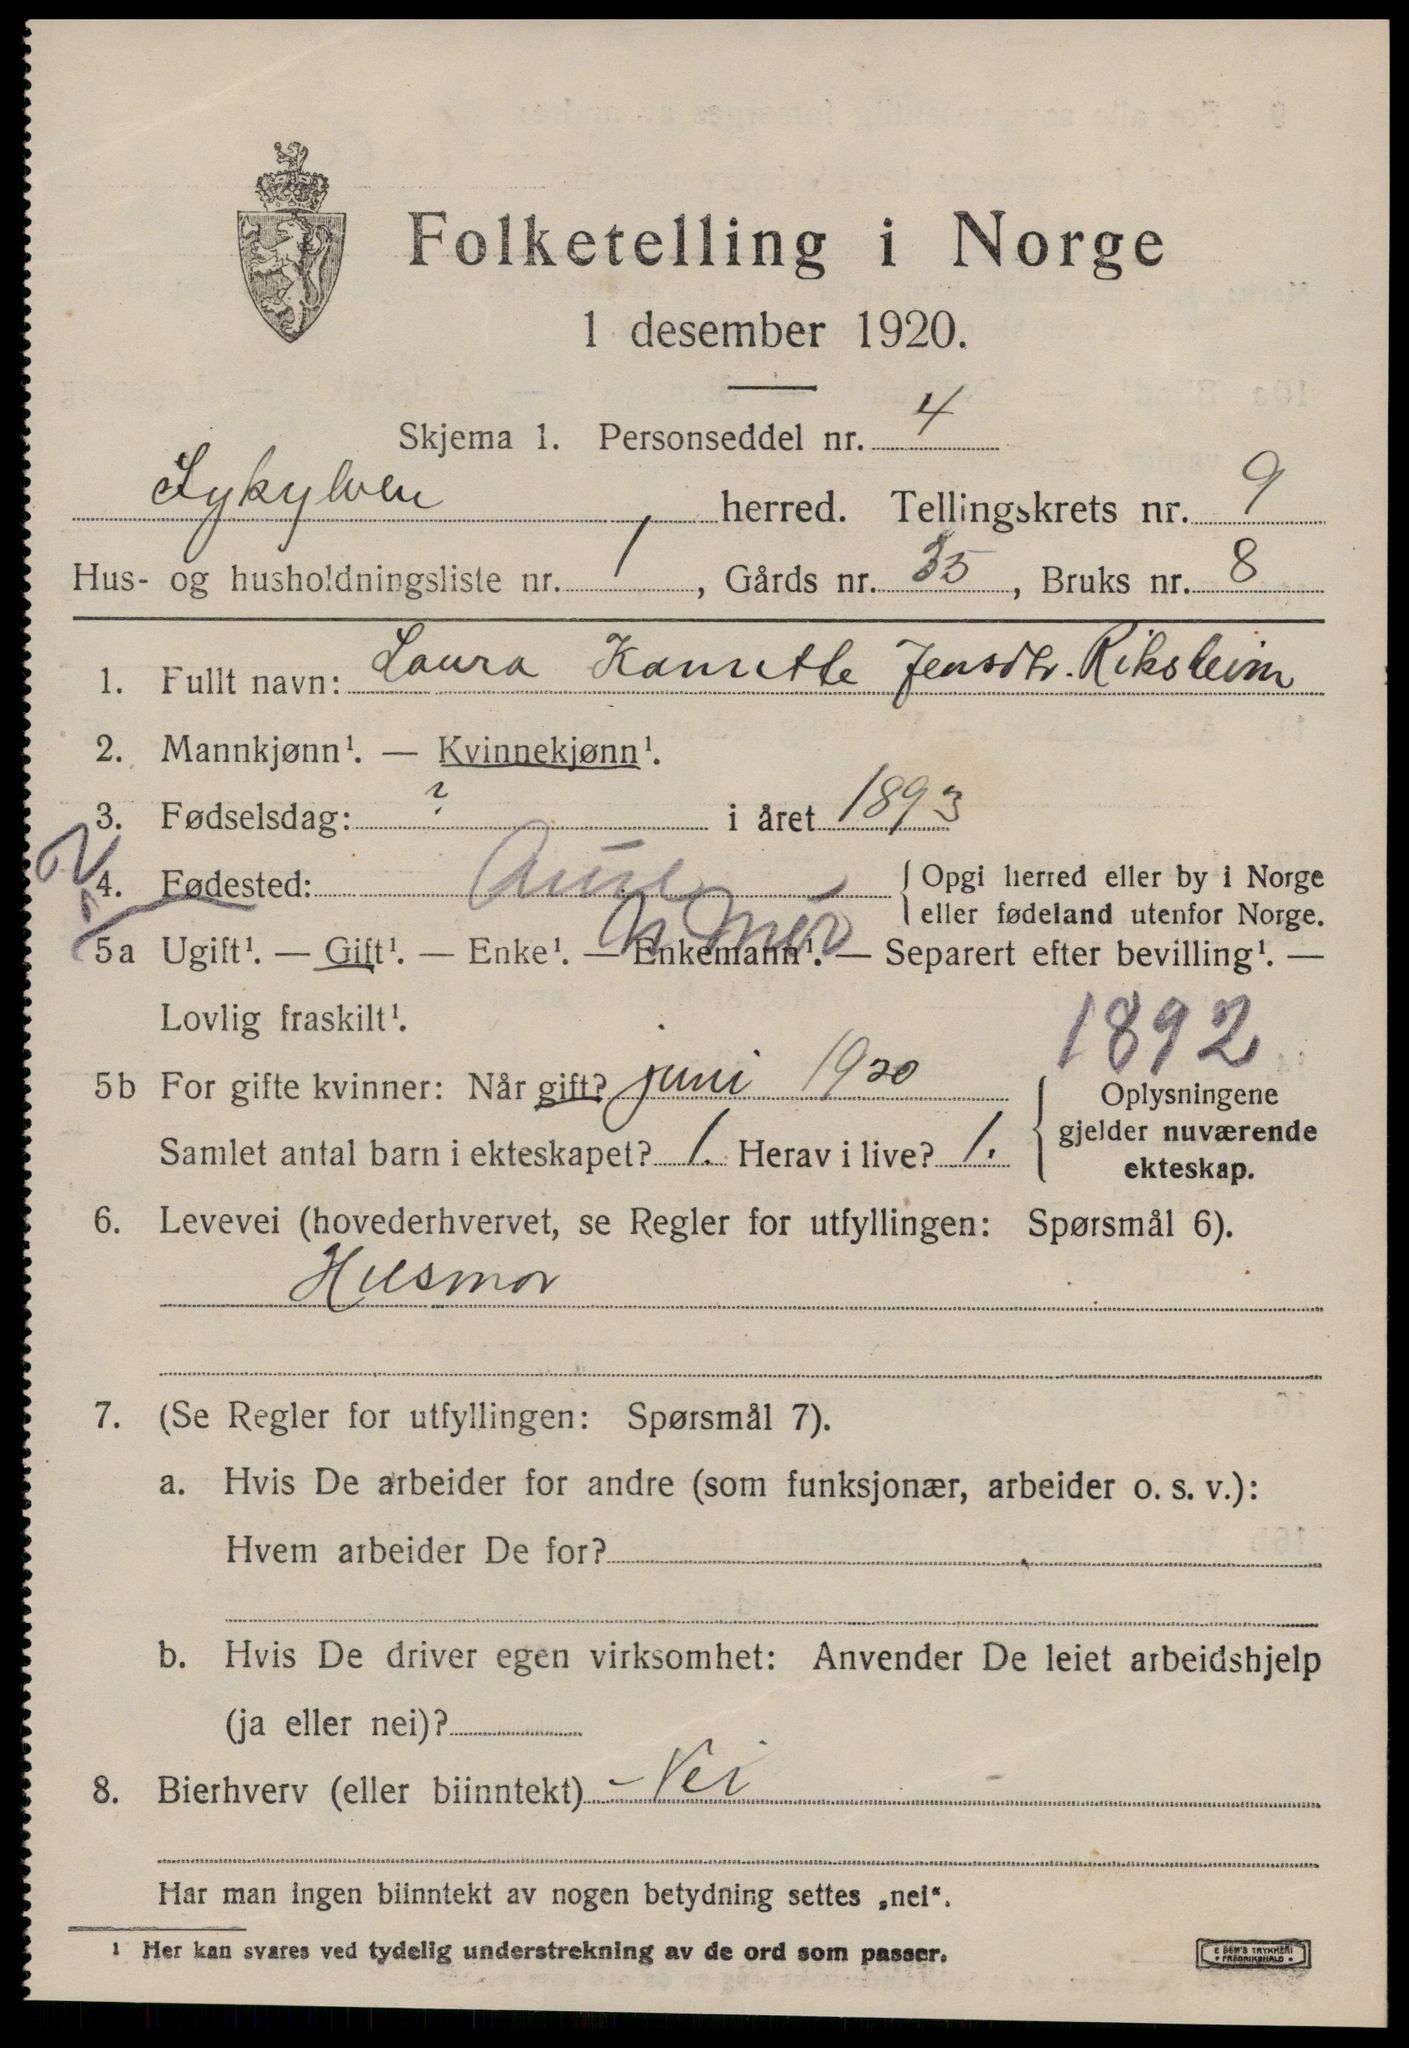 Folketelling i Norge
1 desember 1920.
Skjema 1. Personseddel nr. 4
Sykylven herred. Tellingskrets nr. 9
Hus- og husholdningsliste nr. 1, Gårds nr. 35, Bruks nr. 8
1. Fullt navn: Laura Jensdtr. Riksheim
2. Mannkjønn¹. — Kvinnekjønn¹.
3. Fødselsdag: ? i året 1893
4. Fødested: Aure { Opgi herred eller by i Norge
eller fødeland utenfor Norge.
N. Mør
5a Ugift¹. — Gift¹. — Enke¹. — Enkemann¹. — Separert efter bevilling¹. —
Lovlig fraskilt¹.
1892
5b For gifte kvinner: Når gift? juni 1920
Samlet antal barn i ekteskapet? 1. Herav i live? 1.
{ Oplysningene
gjelder nuværende
ekteskap.
6. Levevei (hovederhvervet, se Regler for utfyllingen: Spørsmål 6).
Husmor
7. (Se Regler for utfyllingen: Spørsmål 7).
a. Hvis De arbeider for andre (som funksjonær, arbeider o. s. v.):
Hvem arbeider De for?
b. Hvis De driver egen virksomhet: Anvender De leiet arbeidshjelp
(ja eller nei)?
8. Bierhverv (eller biinntekt) Nei
Har man ingen biinntekt av nogen betydning settes „nei“.
¹ Her kan svares ved tydelig understrekning av de ord som passer.
E SEM'S TRYKKERI
• FREDRIKSHALD •